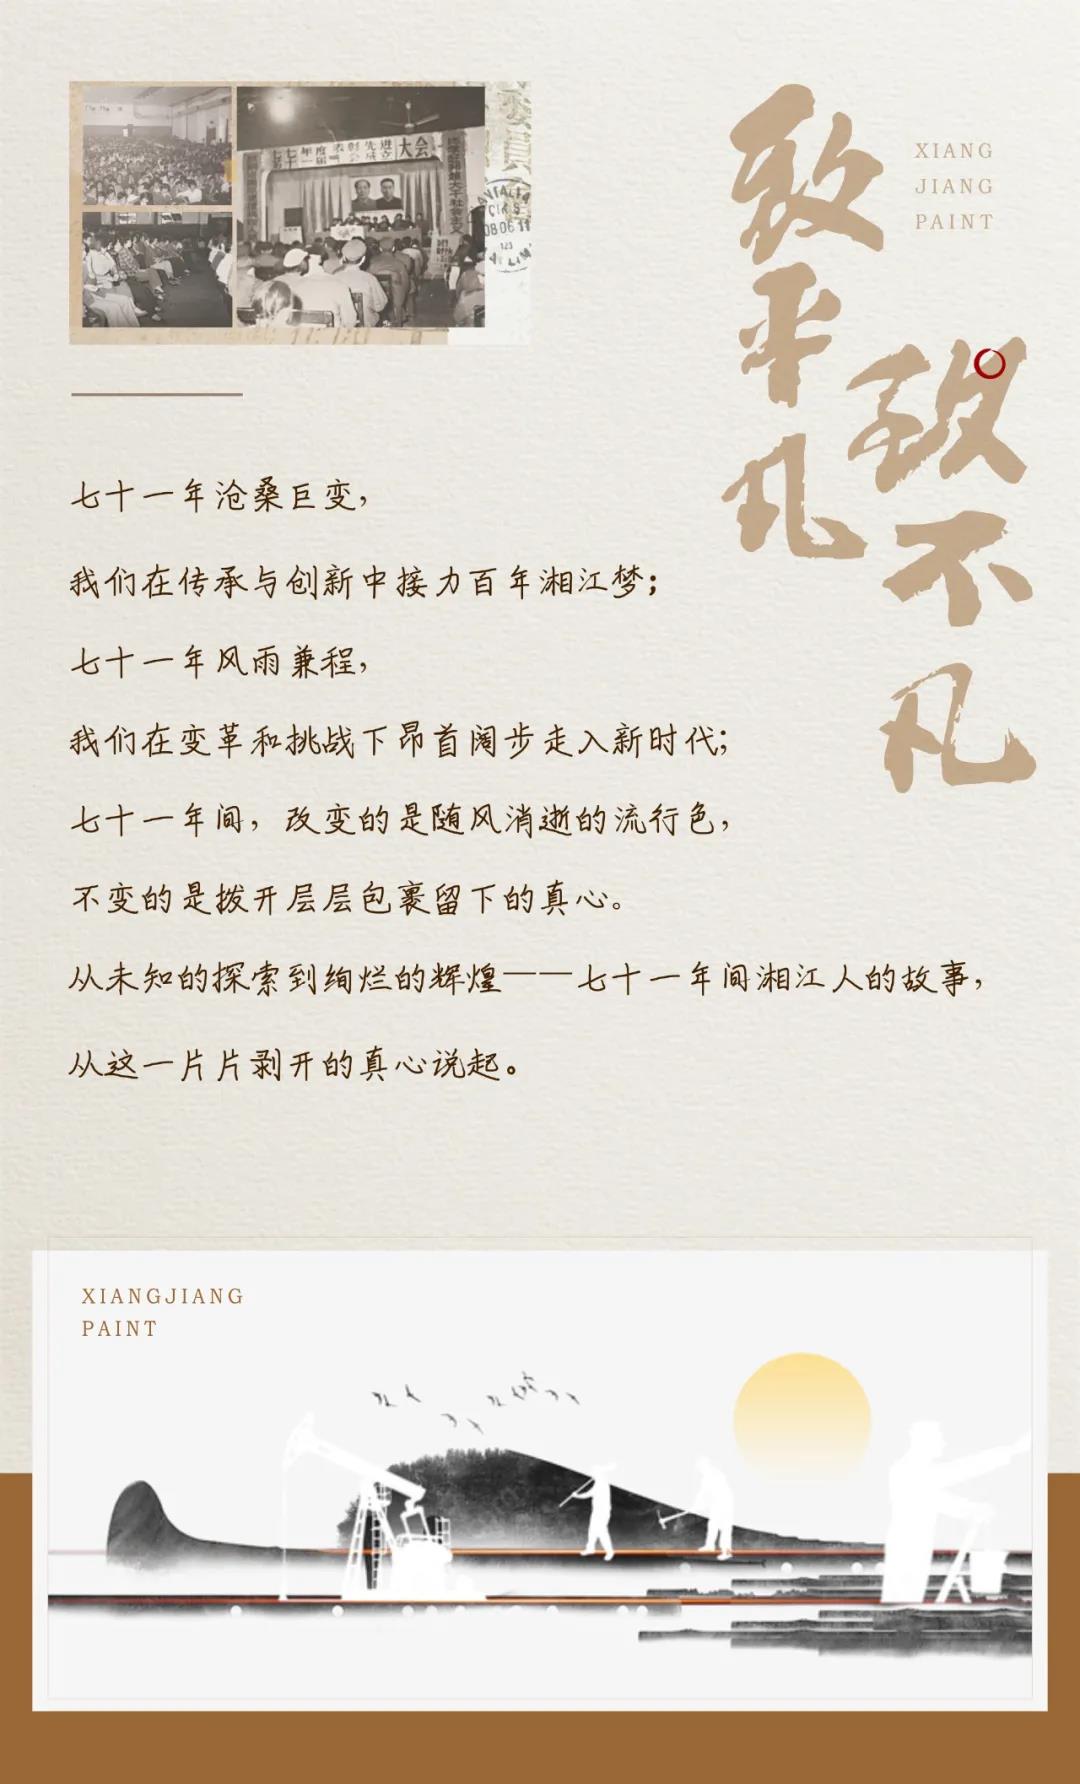 致平凡
致不凡
XIANG
JIANG
PAINT
大会
七十一年沧桑巨变，
我们在传承与创新中接力百年湘江梦；
七十一年风雨兼程，
我们在变革和挑战下昂首阔步走入新时代；
七十一年间，改变的是随风消逝的流行色，
不变的是拨开层层包裹留下的真心。
从未知的探索到绚烂的辉煌——七十一年间湘江人的故事，
从这一片片剥开的真心说起。
XIANGJIANG
PAINT